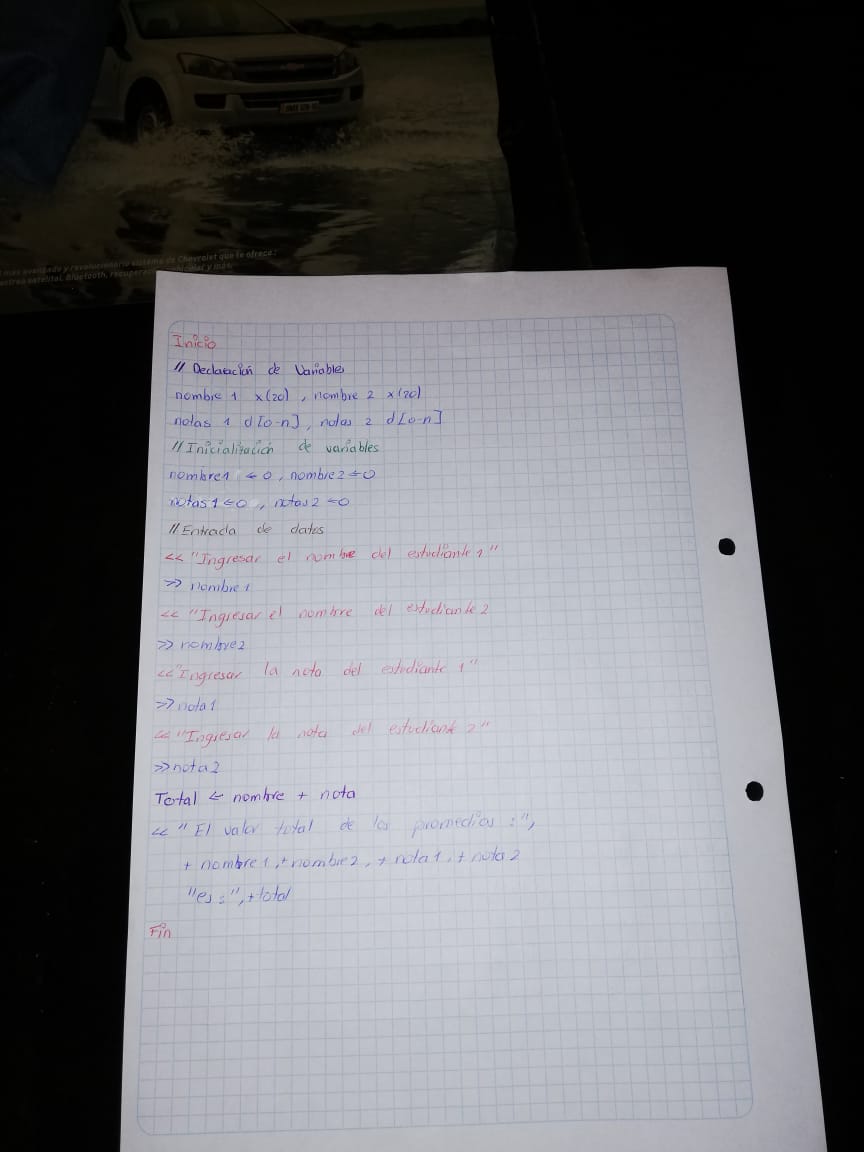 mas avanzado y revolucionario sistema de Chevrolet que te ofrece:
satelital, Bluetooth, y más.
Inicio
// Declaración de Variables
nombre 1 x(20) , nombre 2 x(20)
notas 1 d[0-n] , notas 2 d[0-n]
// Inicialización de variables
nombre1 ← 0 , nombre2 ← 0
notas1 ← 0 , notas2 ← 0
// Entrada de datos
<< "Ingresar el nombre del estudiante 1"
>> nombre1
<< "Ingresar el nombre del estudiante 2
>> nombre2
<< "Ingresar la nota del estudiante 1"
>> nota1
<< "Ingresar la nota del estudiante 2"
>> nota2
Total ← nombre + nota
<< "El valor total de los promedios :",
+ nombre1, + nombre2, + nota1, + nota2
"es :", + total
Fin